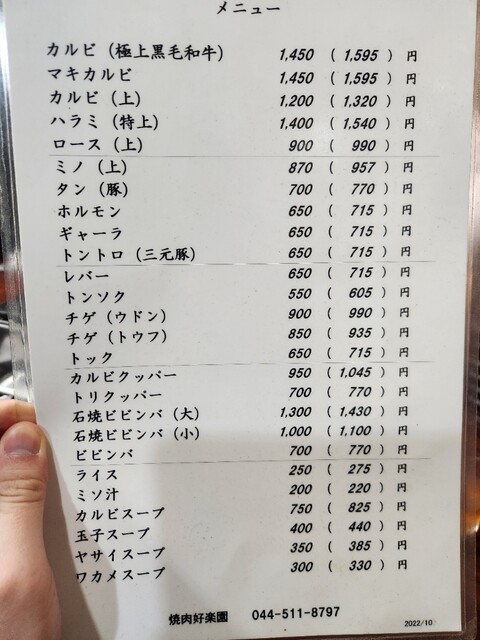 メニュー
カルビ（極上黒毛和牛） 1,450 ( 1,595 ) 円
マキカルビ 1,450 ( 1,595 ) 円
カルビ（上） 1,200 ( 1,320 ) 円
ハラミ（特上） 1,400 ( 1,540 ) 円
ロース（上） 900 ( 990 ) 円
ミノ（上） 870 ( 957 ) 円
タン（豚） 700 ( 770 ) 円
ホルモン 650 ( 715 ) 円
ギャーラ 650 ( 715 ) 円
トントロ（三元豚） 650 ( 715 ) 円
レバー 650 ( 715 ) 円
トンソク 550 ( 605 ) 円
チゲ（ウドン） 900 ( 990 ) 円
チゲ（トウフ） 850 ( 935 ) 円
トック 650 ( 715 ) 円
カルビクッパー 950 ( 1,045 ) 円
トリクッパー 700 ( 770 ) 円
石焼ビビンバ（大） 1,300 ( 1,430 ) 円
石焼ビビンバ（小） 1,000 ( 1,100 ) 円
ビビンバ 700 ( 770 ) 円
ライス 250 ( 275 ) 円
ミソ汁 200 ( 220 ) 円
カルビスープ 750 ( 825 ) 円
玉子スープ 400 ( 440 ) 円
ヤサイスープ 350 ( 385 ) 円
ワカメスープ 300 ( 330 ) 円
焼肉好楽園 044-511-8797
2022/10